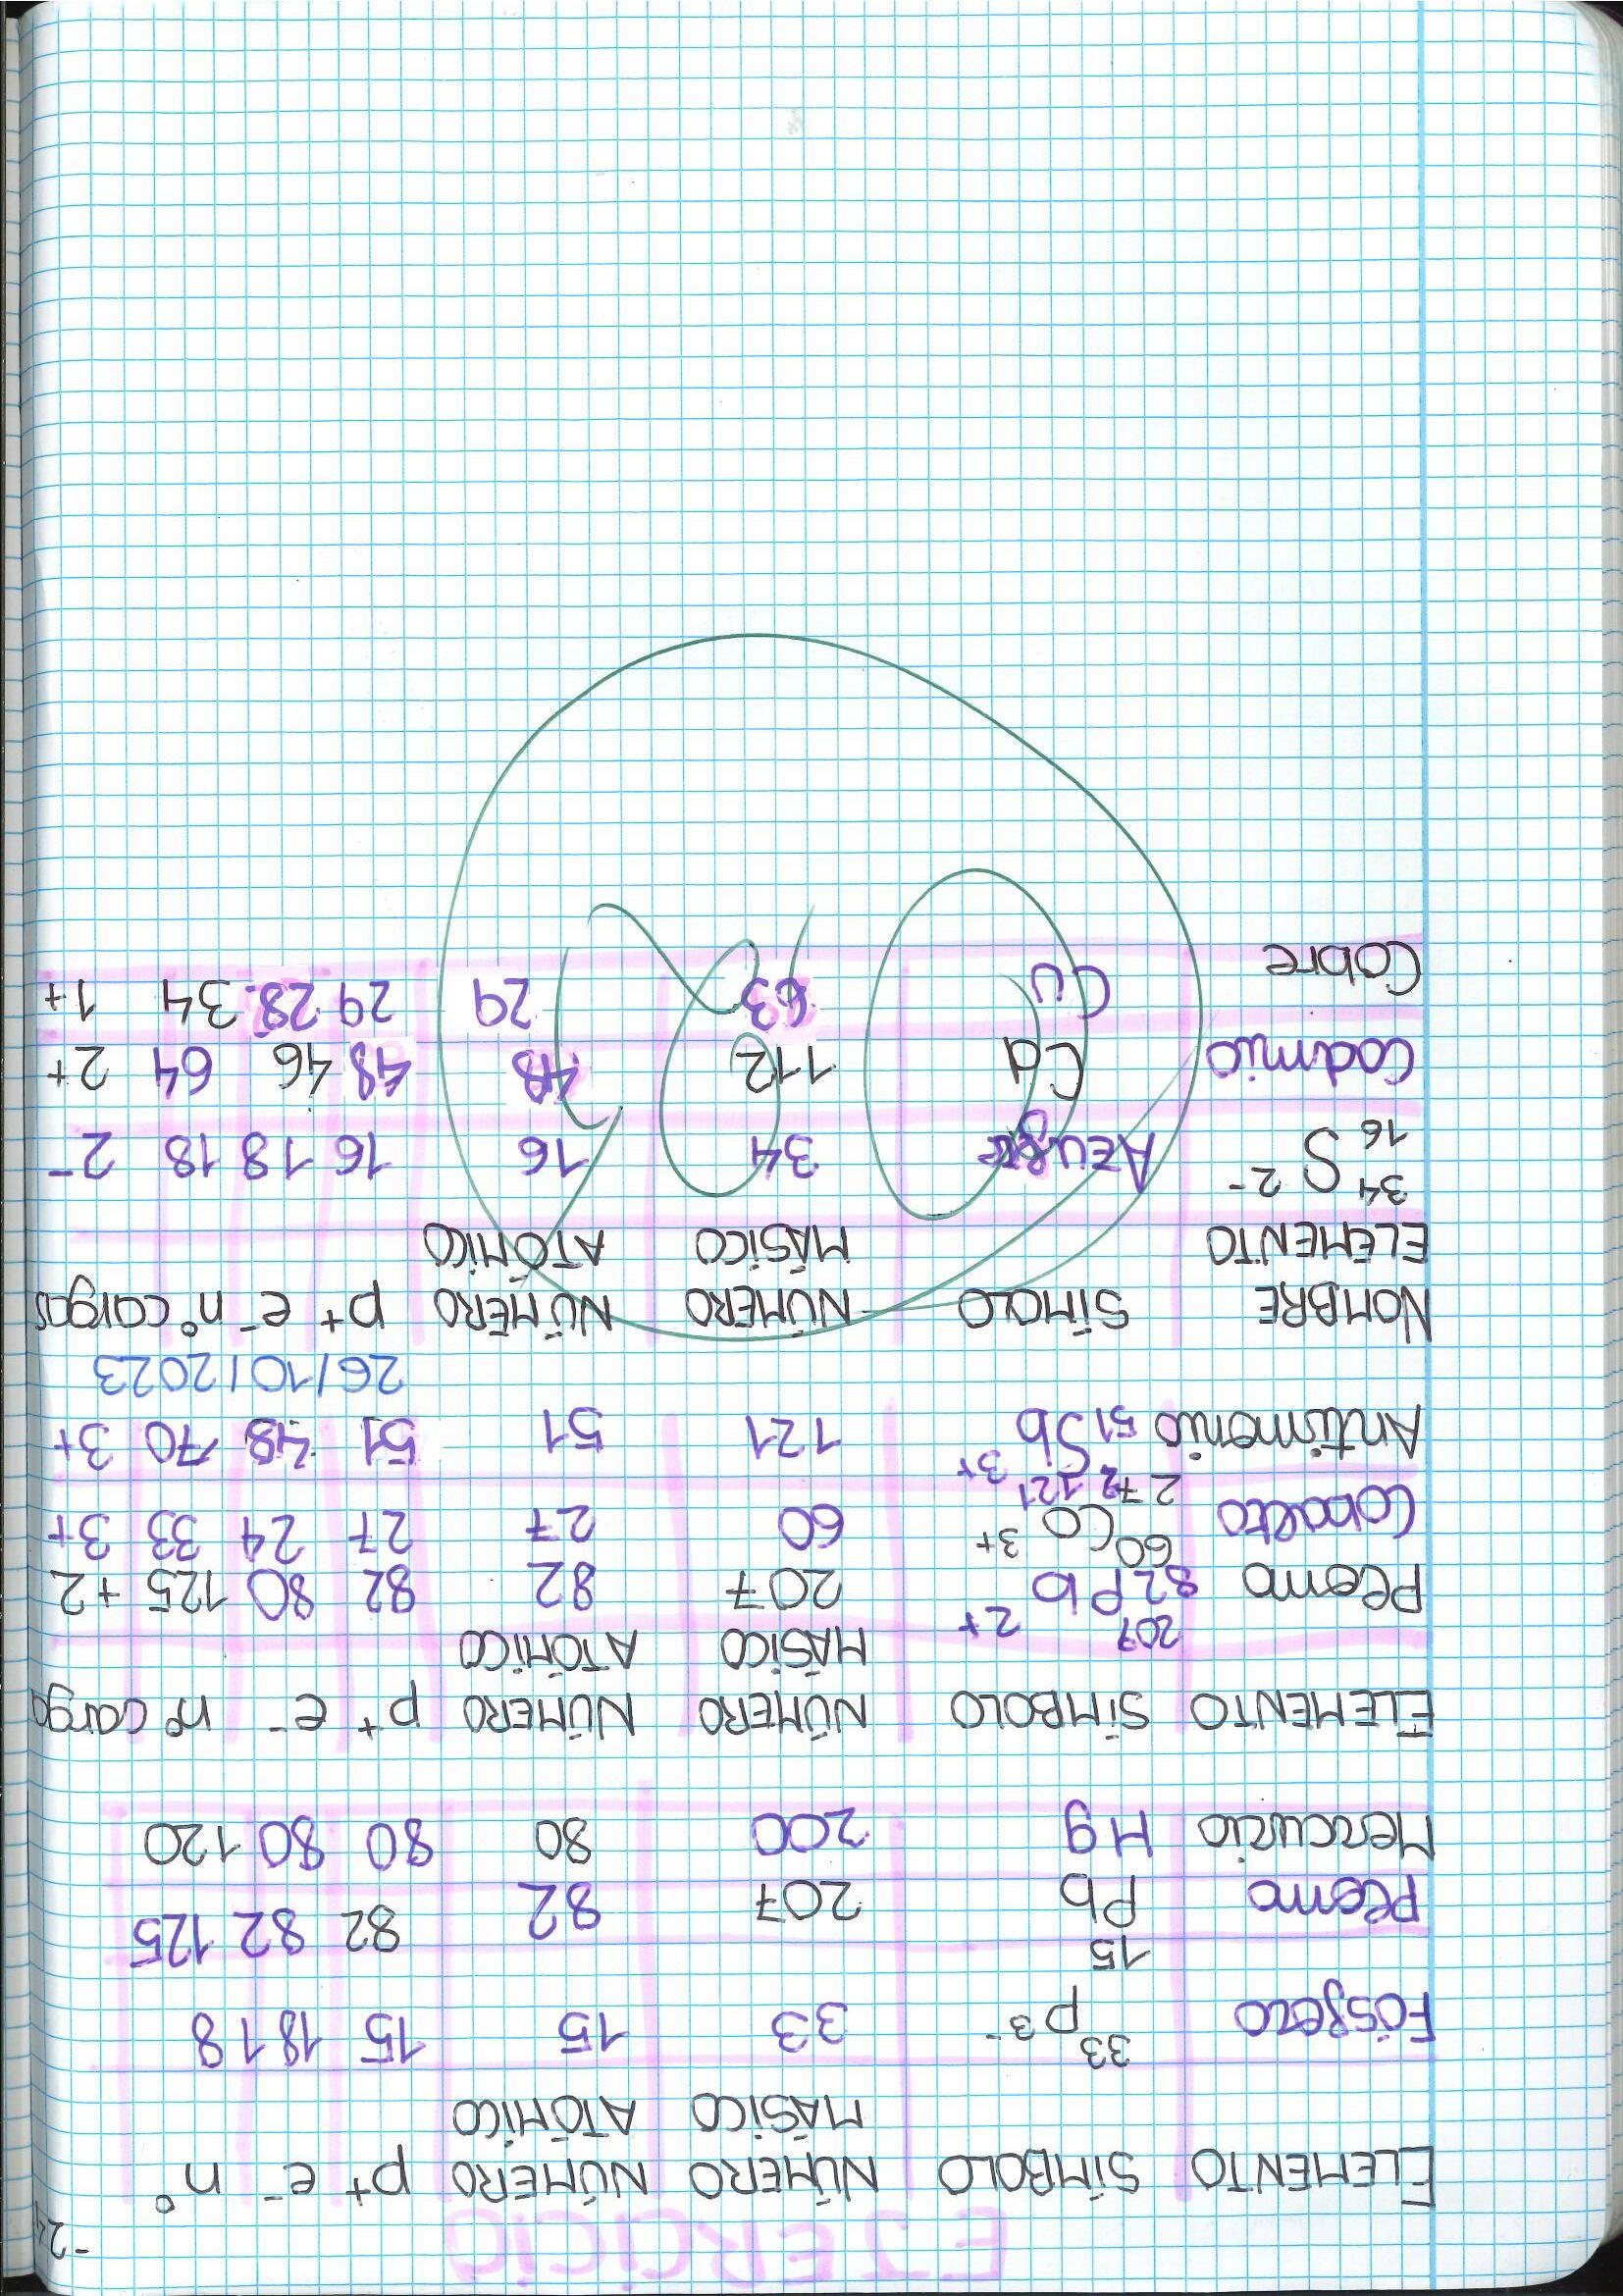 EJERCICIO
ELEMENTO SÍMBOLO NÚMERO MÁSICO NÚMERO ATÓMICO p+ e- n°
Fósforo 33 15 P 3- 33 15 15 18 18
Plomo Pb 207 82 82 82 125
Mercurio Hg 200 80 80 80 120
ELEMENTO SÍMBOLO NÚMERO MÁSICO NÚMERO ATÓMICO p+ e- nº carga
Plomo 207 82 Pb 2+ 207 82 82 80 125 +2
Cobalto 60 27 Co 3+ 60 27 27 24 33 3+
Antimonio 121 51 Sb 3+ 121 51 51 48 70 3+
26/10/2023
NOMBRE ELEMENTO SÍMOLO NÚMERO MÁSICO NÚMERO ATÓMICO p+ e- n° cargas
34 16 S 2- Azufre 34 16 16 18 18 2-
Cadmio Cd 112 48 48 46 64 2+
Cobre Cu 63 29 29 28 34 1+